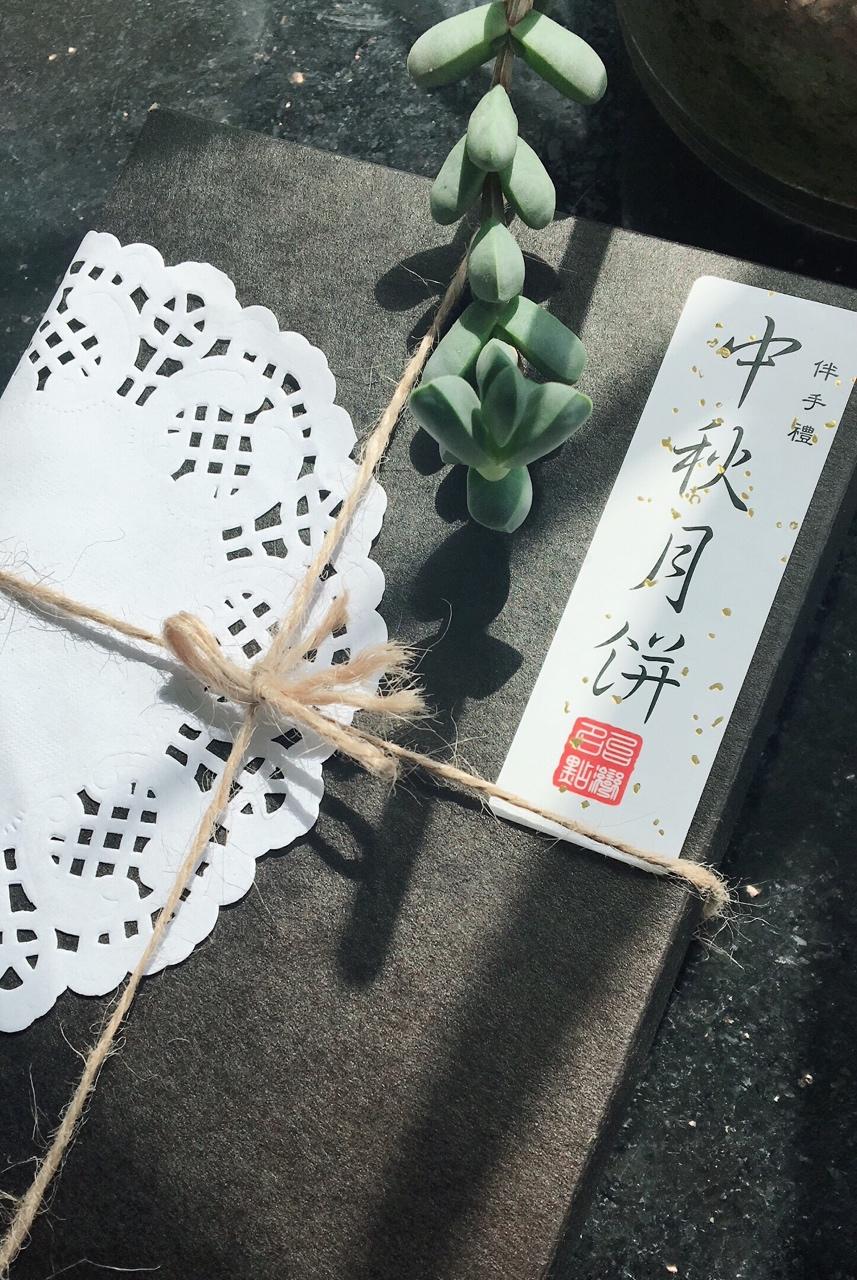 伴手禮
中秋月餅
台灣名點